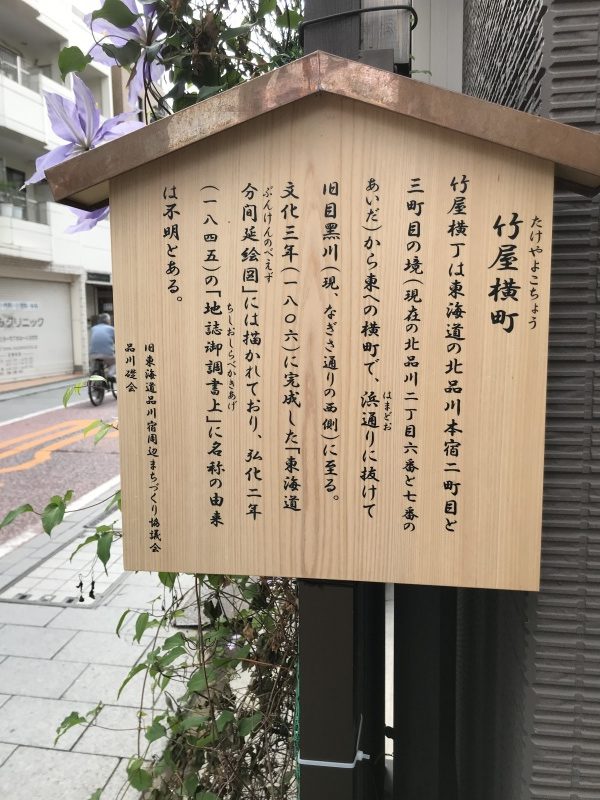 たけやよこちょう
竹屋横町
竹屋横丁は東海道の北品川本宿二町目と
三町目の境(現在の北品川二丁目六番と七番の
あいだ)から東への横町で、浜通りに抜けて
はまどお
旧目黒川(現、なぎさ通りの西側)に至る。
文化三年(一八〇六)に完成した「東海道
分間延絵図」には描かれており、弘化二年
ぶんけんのべえず
(一八四五)の「地誌御調書上」に名称の由来
ちしおしらべかきあげ
は不明とある。
旧東海道品川宿周辺まちづくり協議会
品川礎会
クリニック